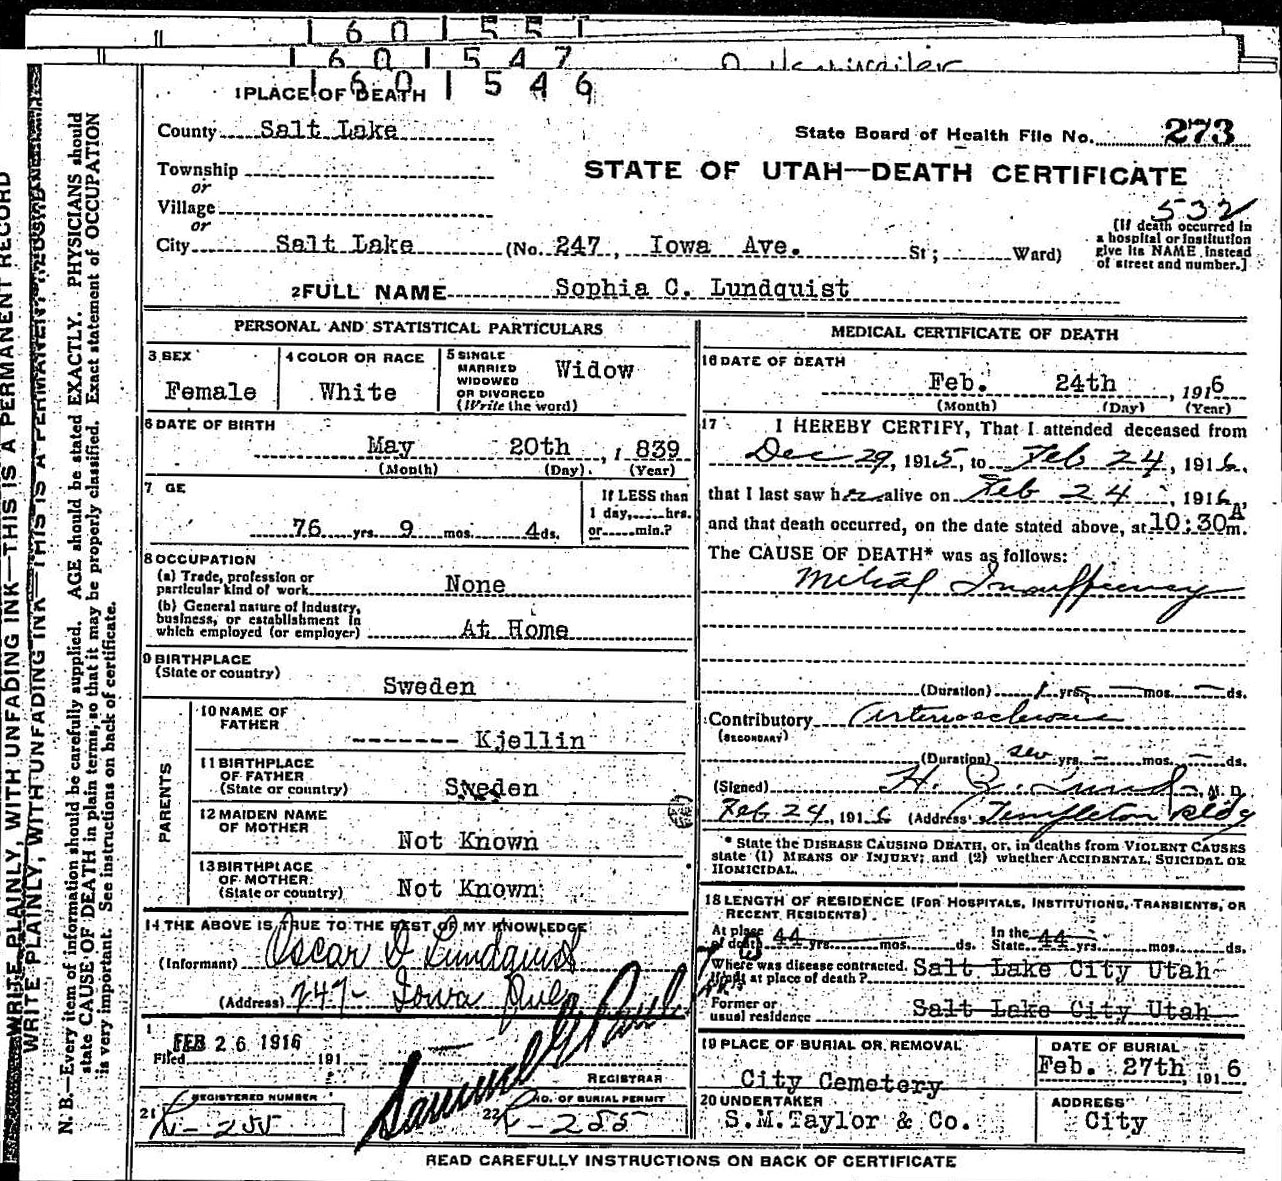 1601551
1601547
1601546
1 PLACE OF DEATH
County Salt Lake
State Board of Health File No. 273
Township
or
STATE OF UTAH—DEATH CERTIFICATE
Village
or
532
City Salt Lake (No. 247, Iowa Ave. St; Ward)
[If death occurred in
a hospital or institution
give its NAME instead
of street and number.]
2 FULL NAME Sophia C. Lundquist
PERSONAL AND STATISTICAL PARTICULARS
3 SEX
Female
4 COLOR OR RACE
White
5 SINGLE
MARRIED
WIDOWED
OR DIVORCED
(Write the word)
Widow
6 DATE OF BIRTH
May 20th, 1839
(Month) (Day) (Year)
7 GE
76 yrs. 9 mos. 4 ds.
If LESS than
1 day, hrs.
or min.?
8 OCCUPATION
(a) Trade, profession or
particular kind of work None
(b) General nature of Industry,
business, or establishment in
which employed (or employer) At Home
9 BIRTHPLACE
(State or country)
Sweden
PARENTS
10 NAME OF
FATHER
------- Kjellin
11 BIRTHPLACE
OF FATHER
(State or country) Sweden
12 MAIDEN NAME
OF MOTHER
Not Known
13 BIRTHPLACE
OF MOTHER
(State or country) Not Known
14 THE ABOVE IS TRUE TO THE BEST OF MY KNOWLEDGE
(Informant) Oscar Lundquist
(Address) 247- Iowa Ave
FEB 26 1916
Filed 191
REGISTRAR
21 REGISTERED NUMBER
255
22 NO. OF BURIAL PERMIT
255
MEDICAL CERTIFICATE OF DEATH
16 DATE OF DEATH
Feb. 24th, 1916
(Month) (Day) (Year)
17 I HEREBY CERTIFY, That I attended deceased from
Dec 29, 1915, to Feb 24, 1916,
that I last saw her alive on Feb 24, 1916
and that death occurred, on the date stated above, at 10:30 A m.
The CAUSE OF DEATH* was as follows:
Mitral Insufficiency
(Duration) 1 yrs. — mos. — ds.
Contributory Arteriosclerosis
(SECONDARY)
(Duration) sev yrs. — mos. — ds.
(Signed) H. , M. D.
Feb 24, 1916 (Address) Templeton Bldg
* State the DISEASE CAUSING DEATH, or, in deaths from VIOLENT CAUSES
state (1) MEANS OF INJURY; and (2) whether ACCIDENTAL, SUICIDAL OR
HOMICIDAL.
18 LENGTH OF RESIDENCE (FOR HOSPITALS, INSTITUTIONS, TRANSIENTS, OR
RECENT RESIDENTS).
At place
of death 44 yrs. mos. ds. In the
State 44 yrs. mos. ds.
Where was disease contracted,
If not at place of death? Salt Lake City Utah
Former or
usual residence Salt Lake City Utah
19 PLACE OF BURIAL OR REMOVAL
City Cemetery
DATE OF BURIAL
Feb. 27th, 1916
20 UNDERTAKER
S.M.Taylor & Co.
ADDRESS
City
READ CAREFULLY INSTRUCTIONS ON BACK OF CERTIFICATE
WRITE PLAINLY, WITH UNFADING INK—THIS IS A PERMANENT RECORD
WRITE PLAINLY, WITH UNFADING INK—THIS IS A PERMANENT RECORD
N. B.—Every item of information should be carefully supplied. AGE should be stated EXACTLY. PHYSICIANS should
state CAUSE OF DEATH in plain terms, so that it may be properly classified. Exact statement of OCCUPATION
is very important. See instructions on back of certificate.